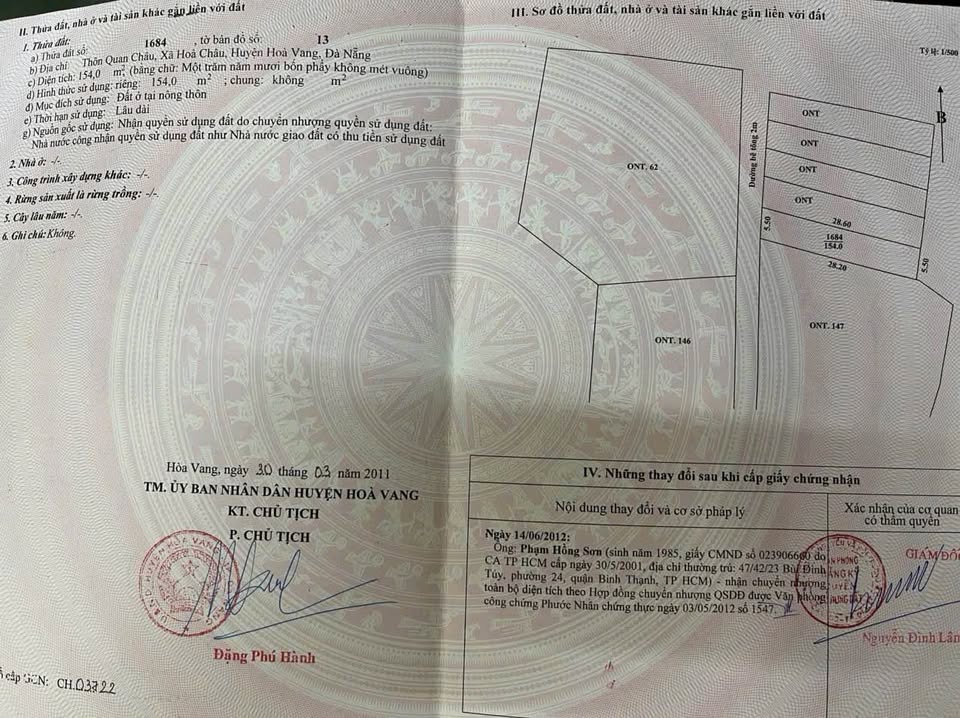 II. Thửa đất, nhà ở và tài sản khác gắn liền với đất
1. Thửa đất:
a) Thửa đất số: 1684 , tờ bản đồ số: 13
b) Địa chỉ: Thôn Quan Châu, Xã Hoà Châu, Huyện Hoà Vang, Đà Nẵng
c) Diện tích: 154,0 m² (bằng chữ: Một trăm năm mươi bốn phẩy không mét vuông)
d) Hình thức sử dụng: riêng: 154,0 m² ; chung: không m²
đ) Mục đích sử dụng: Đất ở tại nông thôn
e) Thời hạn sử dụng: Lâu dài
g) Nguồn gốc sử dụng: Nhận quyền sử dụng đất do chuyển nhượng quyền sử dụng đất:
Nhà nước công nhận quyền sử dụng đất như Nhà nước giao đất có thu tiền sử dụng đất
2. Nhà ở: -/-.
3. Công trình xây dựng khác: -/-.
4. Rừng sản xuất là rừng trồng: -/-.
5. Cây lâu năm: -/-.
6. Ghi chú: Không.
Hòa Vang, ngày 30 tháng 03 năm 2011
TM. ỦY BAN NHÂN DÂN HUYỆN HOÀ VANG
KT. CHỦ TỊCH
P. CHỦ TỊCH
Đặng Phú Hành
cấp GCN: CH.03722
III. Sơ đồ thửa đất, nhà ở và tài sản khác gắn liền với đất
Tỷ lệ: 1/500
B
ONT
ONT
ONT
ONT
ONT. 62
Đường bê tông 2m
28.60
5.50
1684
154.0
5.50
28.20
ONT. 147
ONT. 146
IV. Những thay đổi sau khi cấp giấy chứng nhận
Nội dung thay đổi và cơ sở pháp lý
Xác nhận của cơ quan
có thẩm quyền
Ngày 14/06/2012:
Ông: Phạm Hồng Sơn (sinh năm 1985, giấy CMND số 023906660 do
CA TP HCM cấp ngày 30/5/2001, địa chỉ thường trú: 47/42/23 Bùi Đình
Túy, phường 24, quận Bình Thạnh, TP HCM) - nhận chuyển nhượng
toàn bộ diện tích theo Hợp đồng chuyển nhượng QSDĐ được Văn phòng
công chứng Phước Nhân chứng thực ngày 03/05/2012 số 1547.
GIÁM ĐỐ
Nguyễn Đình Lân